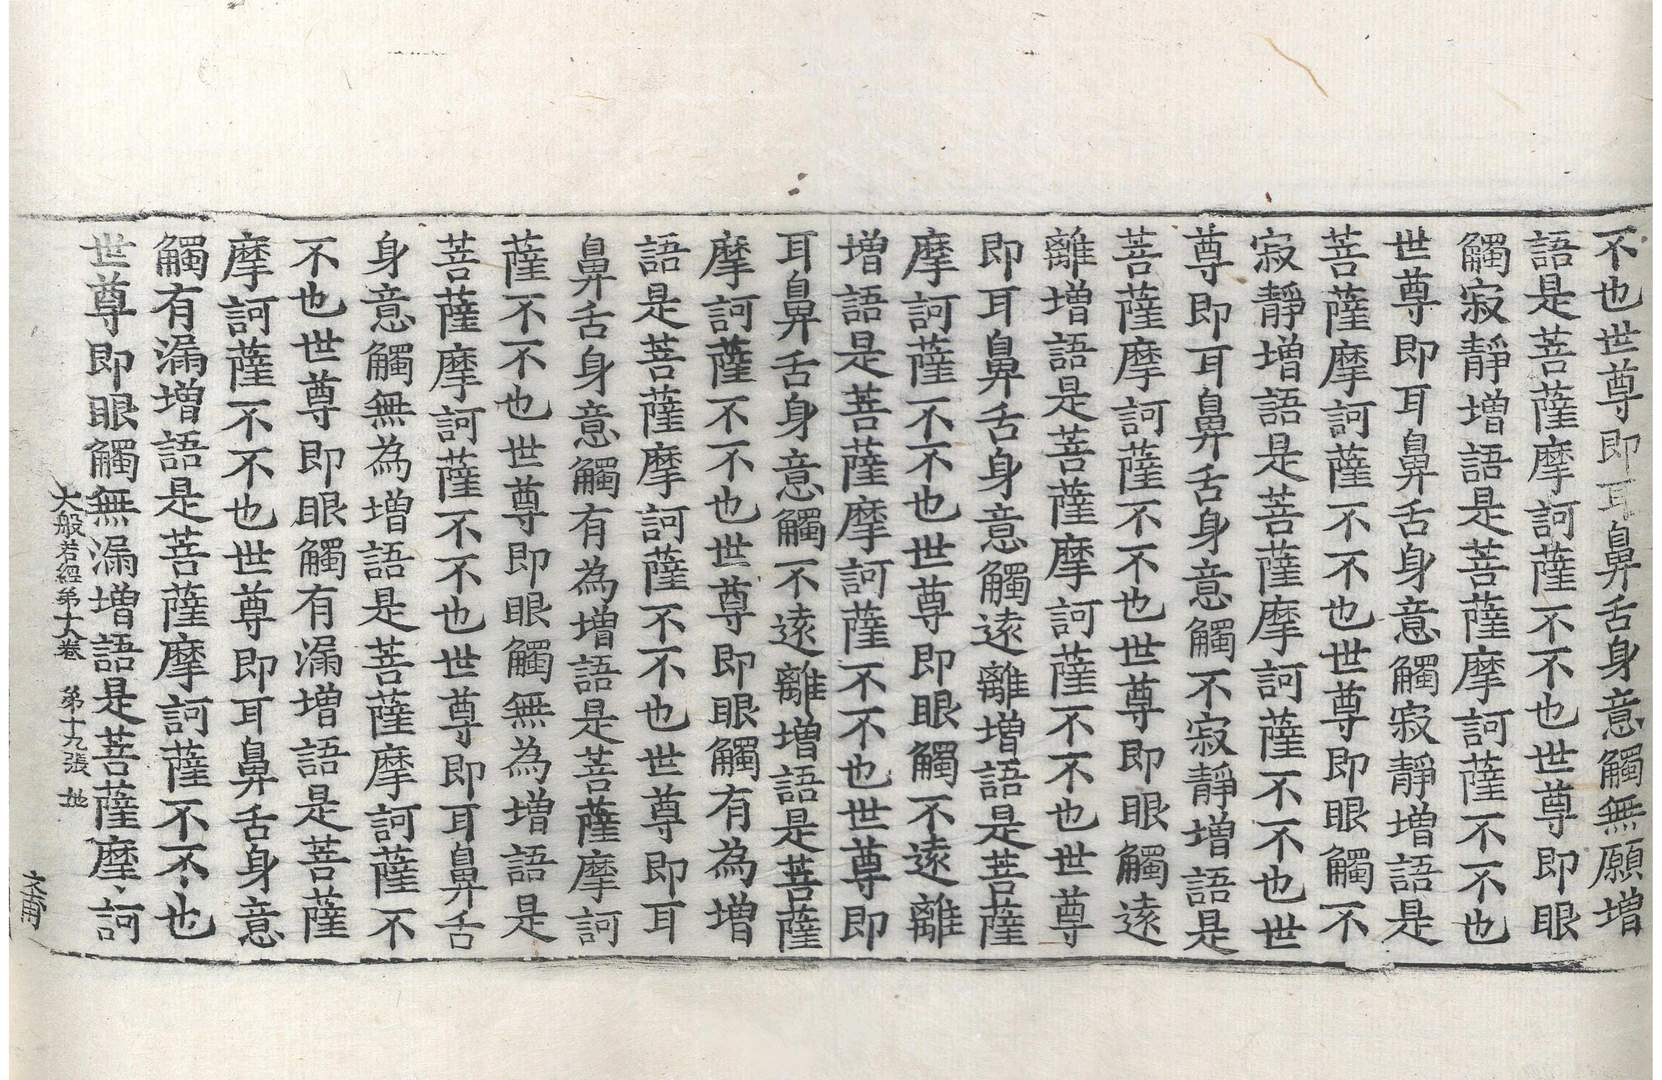 不也世尊即耳鼻舌身意觸無願增
語是菩薩摩訶薩不不也世尊即眼
觸寂靜增語是菩薩摩訶薩不不也
世尊即耳鼻舌身意觸寂靜增語是
菩薩摩訶薩不不也世尊即眼觸不
寂靜增語是菩薩摩訶薩不不也世
尊即耳鼻舌身意觸不寂靜增語是
菩薩摩訶薩不不也世尊即眼觸遠
離增語是菩薩摩訶薩不不也世尊
即耳鼻舌身意觸遠離增語是菩薩
摩訶薩不不也世尊即眼觸不遠離
增語是菩薩摩訶薩不不也世尊即
耳鼻舌身意觸不遠離增語是菩薩
摩訶薩不不也世尊即眼觸有為增
語是菩薩摩訶薩不不也世尊即耳
鼻舌身意觸有為增語是菩薩摩訶
薩不不也世尊即眼觸無為增語是
菩薩摩訶薩不不也世尊即耳鼻舌
身意觸無為增語是菩薩摩訶薩不
不也世尊即眼觸有漏增語是菩薩
摩訶薩不不也世尊即耳鼻舌身意
觸有漏增語是菩薩摩訶薩不不也
世尊即眼觸無漏增語是菩薩摩訶
大般若經第十八卷 第十九張 地